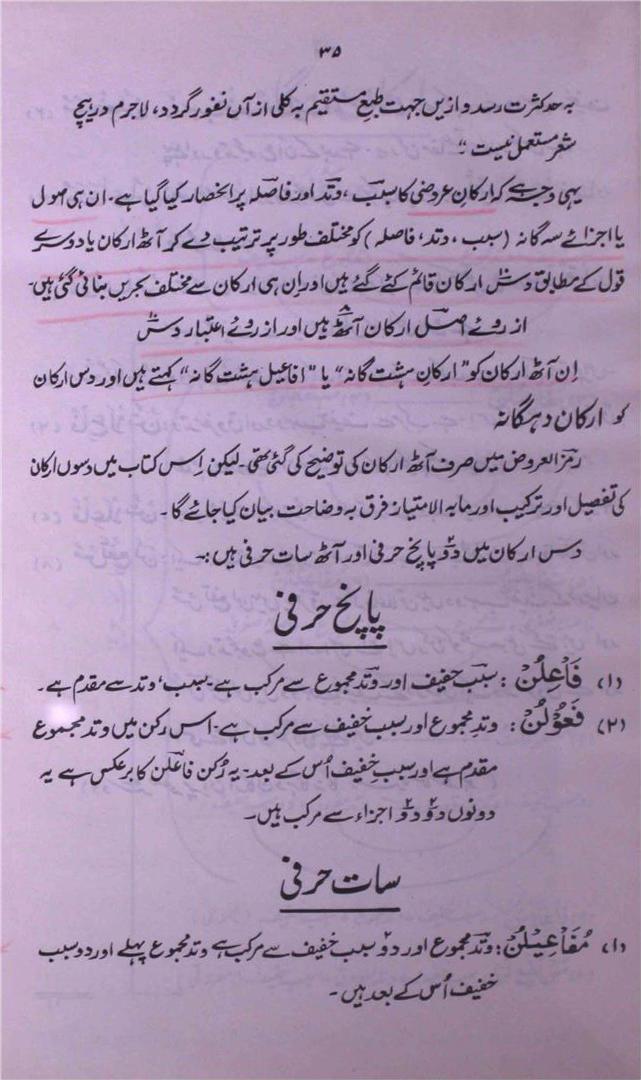 ۳۵
بہ حد کثرت رسد و ازیں جہت طبعِ مستقیم بہ کلی از آں نفور گردد، لاجرم در ہیچ
شعر مستعمل نیست"
یہی وجہ ہے کہ ارکانِ عروضی کا سبب، وتد اور فاصلہ پر انحصار کیا گیا ہے۔ ان ہی اصول
یا اجزائے سہ گانہ (سبب، وتد، فاصلہ) کو مختلف طور پر ترتیب دے کر آٹھ ارکان یا دوسرے
قول کے مطابق دس ارکان قائم کئے گئے ہیں اور اِن ہی ارکان سے مختلف بحریں بنائی گئی ہیں۔
از روئے اصل ارکان آٹھ ہیں اور از روئے اعتبار دس
اِن آٹھ ارکان کو "ارکانِ ہشت گانہ" یا "افاعیل ہشت گانہ" کہتے ہیں اور دس ارکان
کو ارکان دہگانہ
رمز العروض میں صرف آٹھ ارکان کی توضیح کی گئی تھی۔ لیکن اِس کتاب میں دسوں ارکان
کی تفصیل اور ترکیب اور مابہ الامتیاز فرق بہ وضاحت بیان کیا جائے گا۔
دس ارکان میں دو پانچ حرفی اور آٹھ سات حرفی ہیں:۔
پانچ حرفی
(۱) فَاعِلُنْ: سببِ خفیف اور وتد مجموع سے مرکب ہے۔ سبب، وتد سے مقدم ہے۔
(۲) فَعُوْلُنْ: وتدِ مجموع اور سبب خفیف سے مرکب ہے۔ اس رکن میں وتد مجموع
مقدم ہے اور سببِ خفیف اُس کے بعد۔ یہ رُکن فاعلن کا برعکس ہے یہ
دونوں دو دو اجزاء سے مرکب ہیں۔
سات حرفی
(۱) مُفَاعِیْلُنْ: وتد مجموع اور دو سبب خفیف سے مرکب ہے وتد مجموع پہلے اور دو سبب
خفیف اُس کے بعد ہیں۔